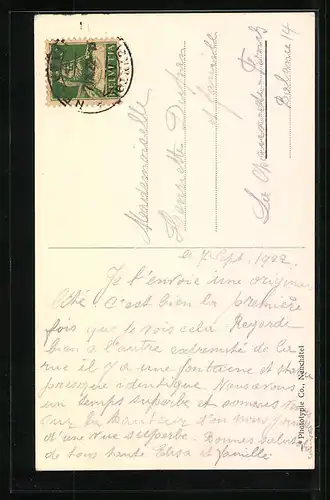 HELVETIA
Mademoiselle
Henriette
et famille
La Chaux-de-Fonds
Balance 14
ce 7 Sept. 1922.
Je t'envoie une origina
lité C'est bien la première
fois que je vois cela Regarde
bien à l'autre extrémité de la
rue il y a une fontaine et
presque identique. Nous avons
un temps superbe et sommes
sur la hauteur d'où nous
d'une vue superbe. Bonnes saluts
de tous tante Elisa et famille
Phototypie Co., Neuchâtel